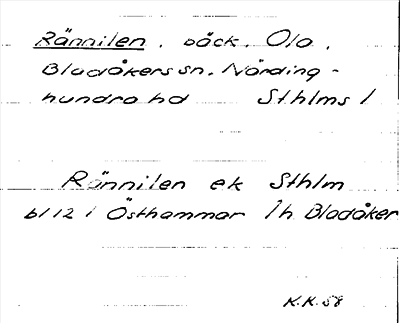 Rännilen. bäck. Ola.
Bladåkers sn. Närding-
hundra hd Sthlms l
Rännilen ek Sthlm
bl 12 i Östhammar Th Bladåker
K.K. 58